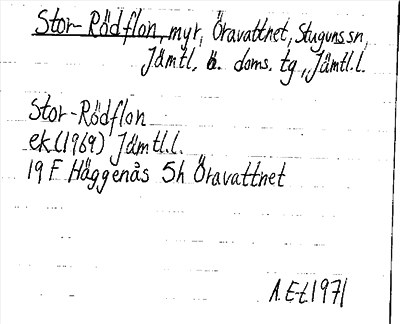 Stor-Rödflon, myr, Öravattnet, Stuguns sn,
Jämtl. ö. doms. tg, Jämtl.l.
Stor-Rödflon
ek(1969) Jämtl.l.
19 F Häggenås 5h Öravattnet
A.E-t.1971